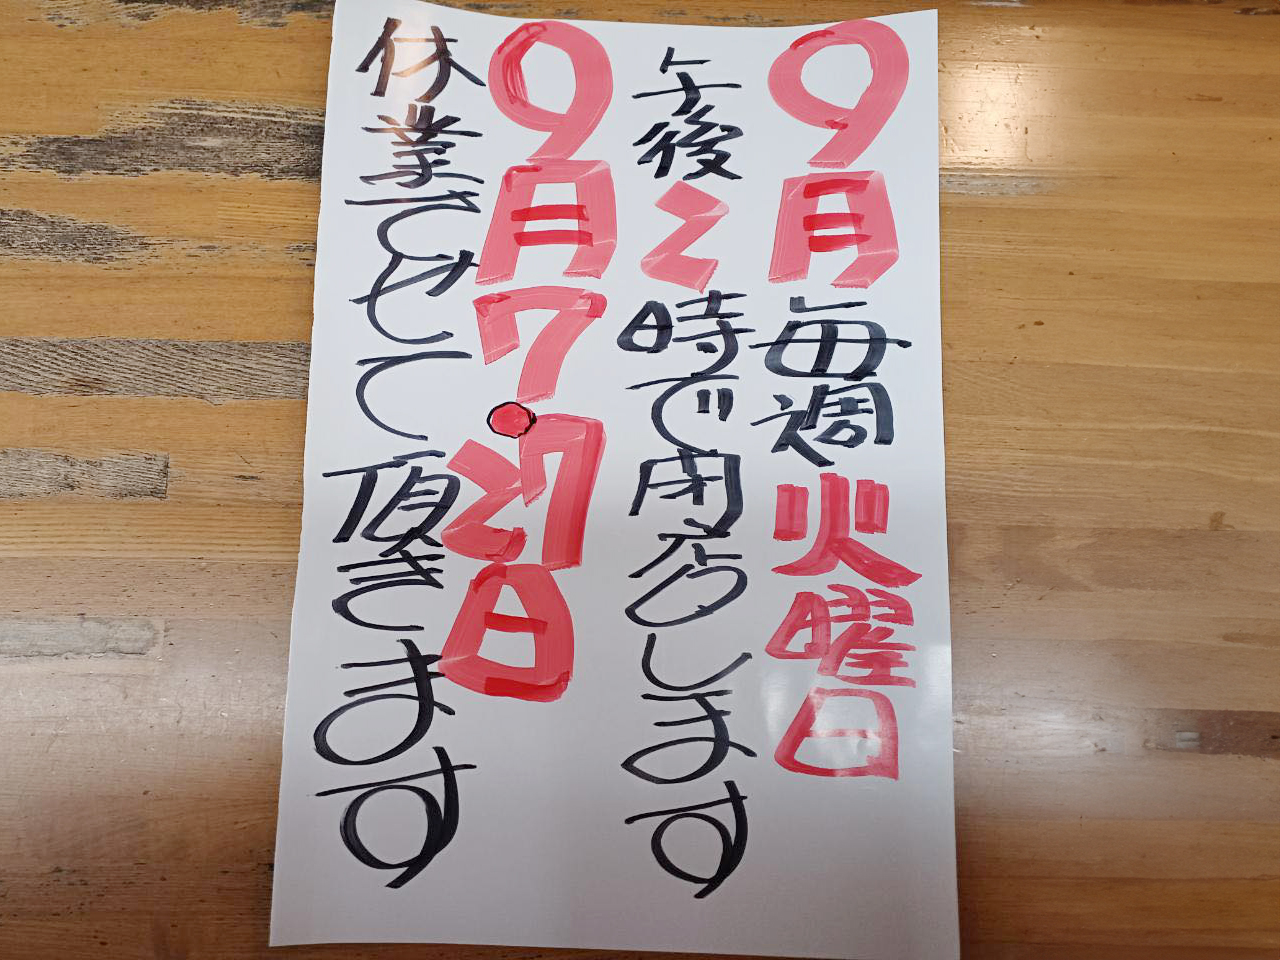 9月毎週火曜日
午後2時で閉店します
9月7・27日
休業させて頂きます